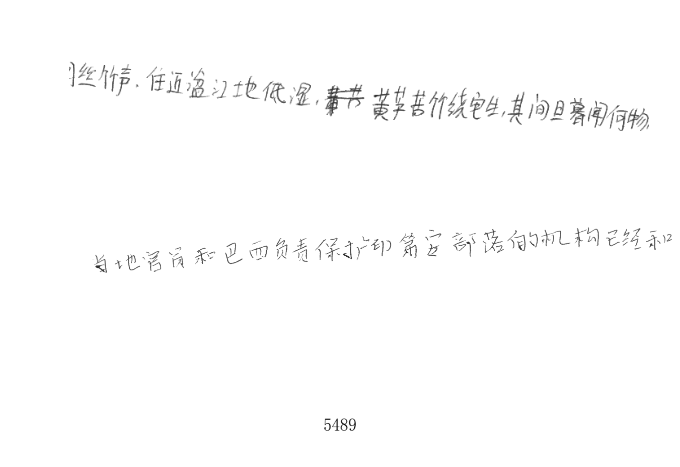 丝竹声.住近湓江地低湿,黄芦苦竹绕宅生,其间旦暮闻何物,
当地官员和巴西负责保护印第安部落的机构已经和
5489